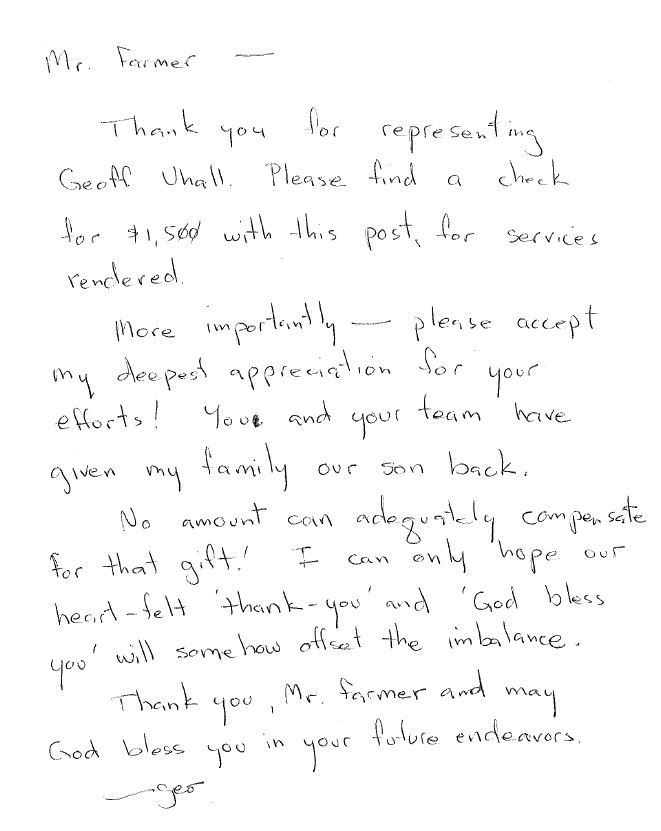 Mr. Farmer —
Thank you for representing
Geoff Uhall. Please find a check
for $1,500 with this post, for services
rendered.
More importantly — please accept
my deepest appreciation for your
efforts! You and your team have
given my family our son back.
No amount can adequately compensate
for that gift! I can only hope our
heart-felt 'thank-you' and 'God bless
you' will somehow offset the imbalance.
Thank you, Mr. Farmer and may
God bless you in your future endeavors.
—geo